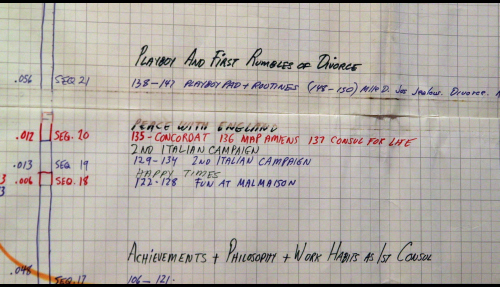 PLAYBOY AND FIRST RUMBLES OF DIVORCE
.056 SEQ 21 138-147 PLAYBOY PAD + ROUTINES (148-150) MIKE D. JOS JEALOUS. DIVORCE.
PEACE WITH ENGLAND
.012 SEQ. 20 135-CONCORDAT 136 MAP AMIENS 137 CONSUL FOR LIFE
2ND ITALIAN CAMPAIGN
.013 SEQ 19 129-134 2ND ITALIAN CAMPAIGN
HAPPY TIMES
.006 SEQ. 18 122-128 FUN AT MALMAISON
ACHIEVEMENTS + PHILOSOPHY + WORK HABITS AS 1ST CONSUL
.048 SEQ. 17 106-121.